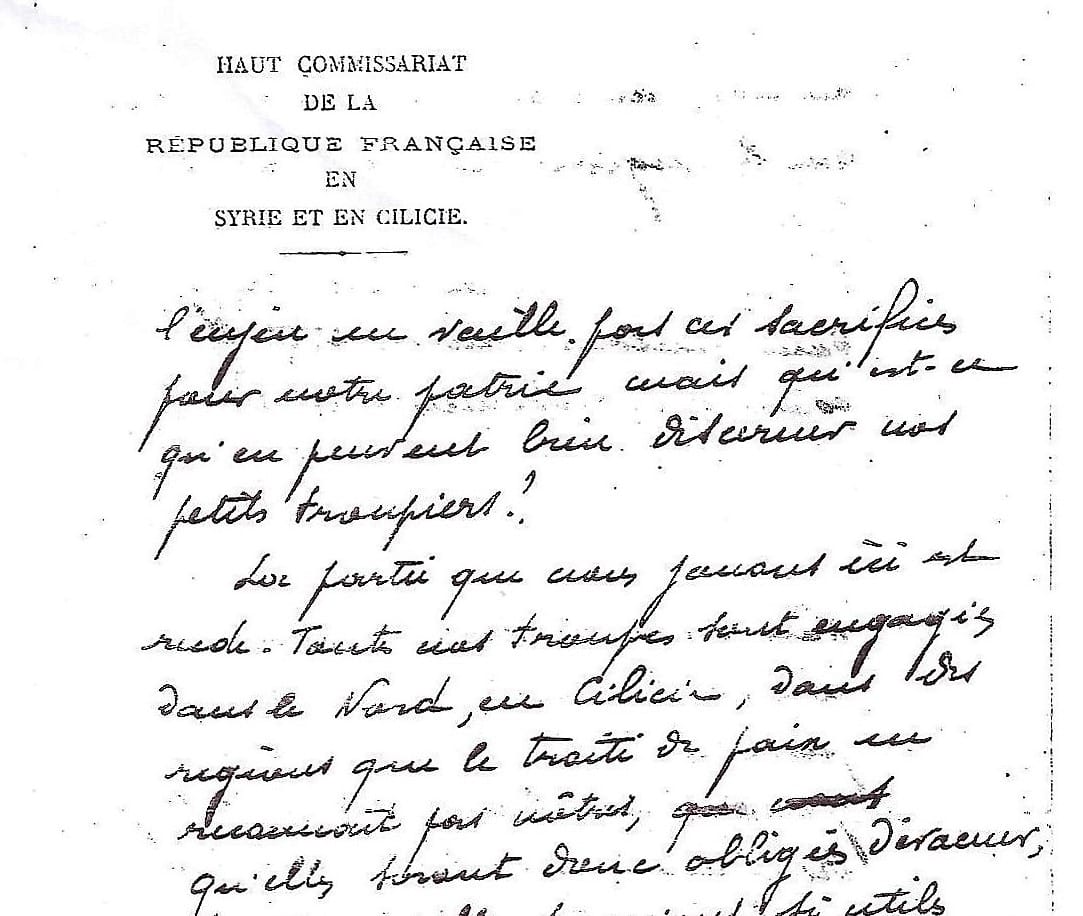 HAUT COMMISSARIAT
DE LA
RÉPUBLIQUE FRANÇAISE
EN
SYRIE ET EN CILICIE.
l'enjeu ne vaille pas ces sacrifices
pour notre patrie mais qu'est-ce
qu'en peuvent bien discerner nos
petits troupiers!
La partie que nous jouons ici est
rude. Toutes nos troupes sont engagées
dans le Nord, en Cilicie, dans des
régions que le traité de paix ne
reconnait pas nôtres,
qu'elles seront donc obligées d'évacuer,
si utiles